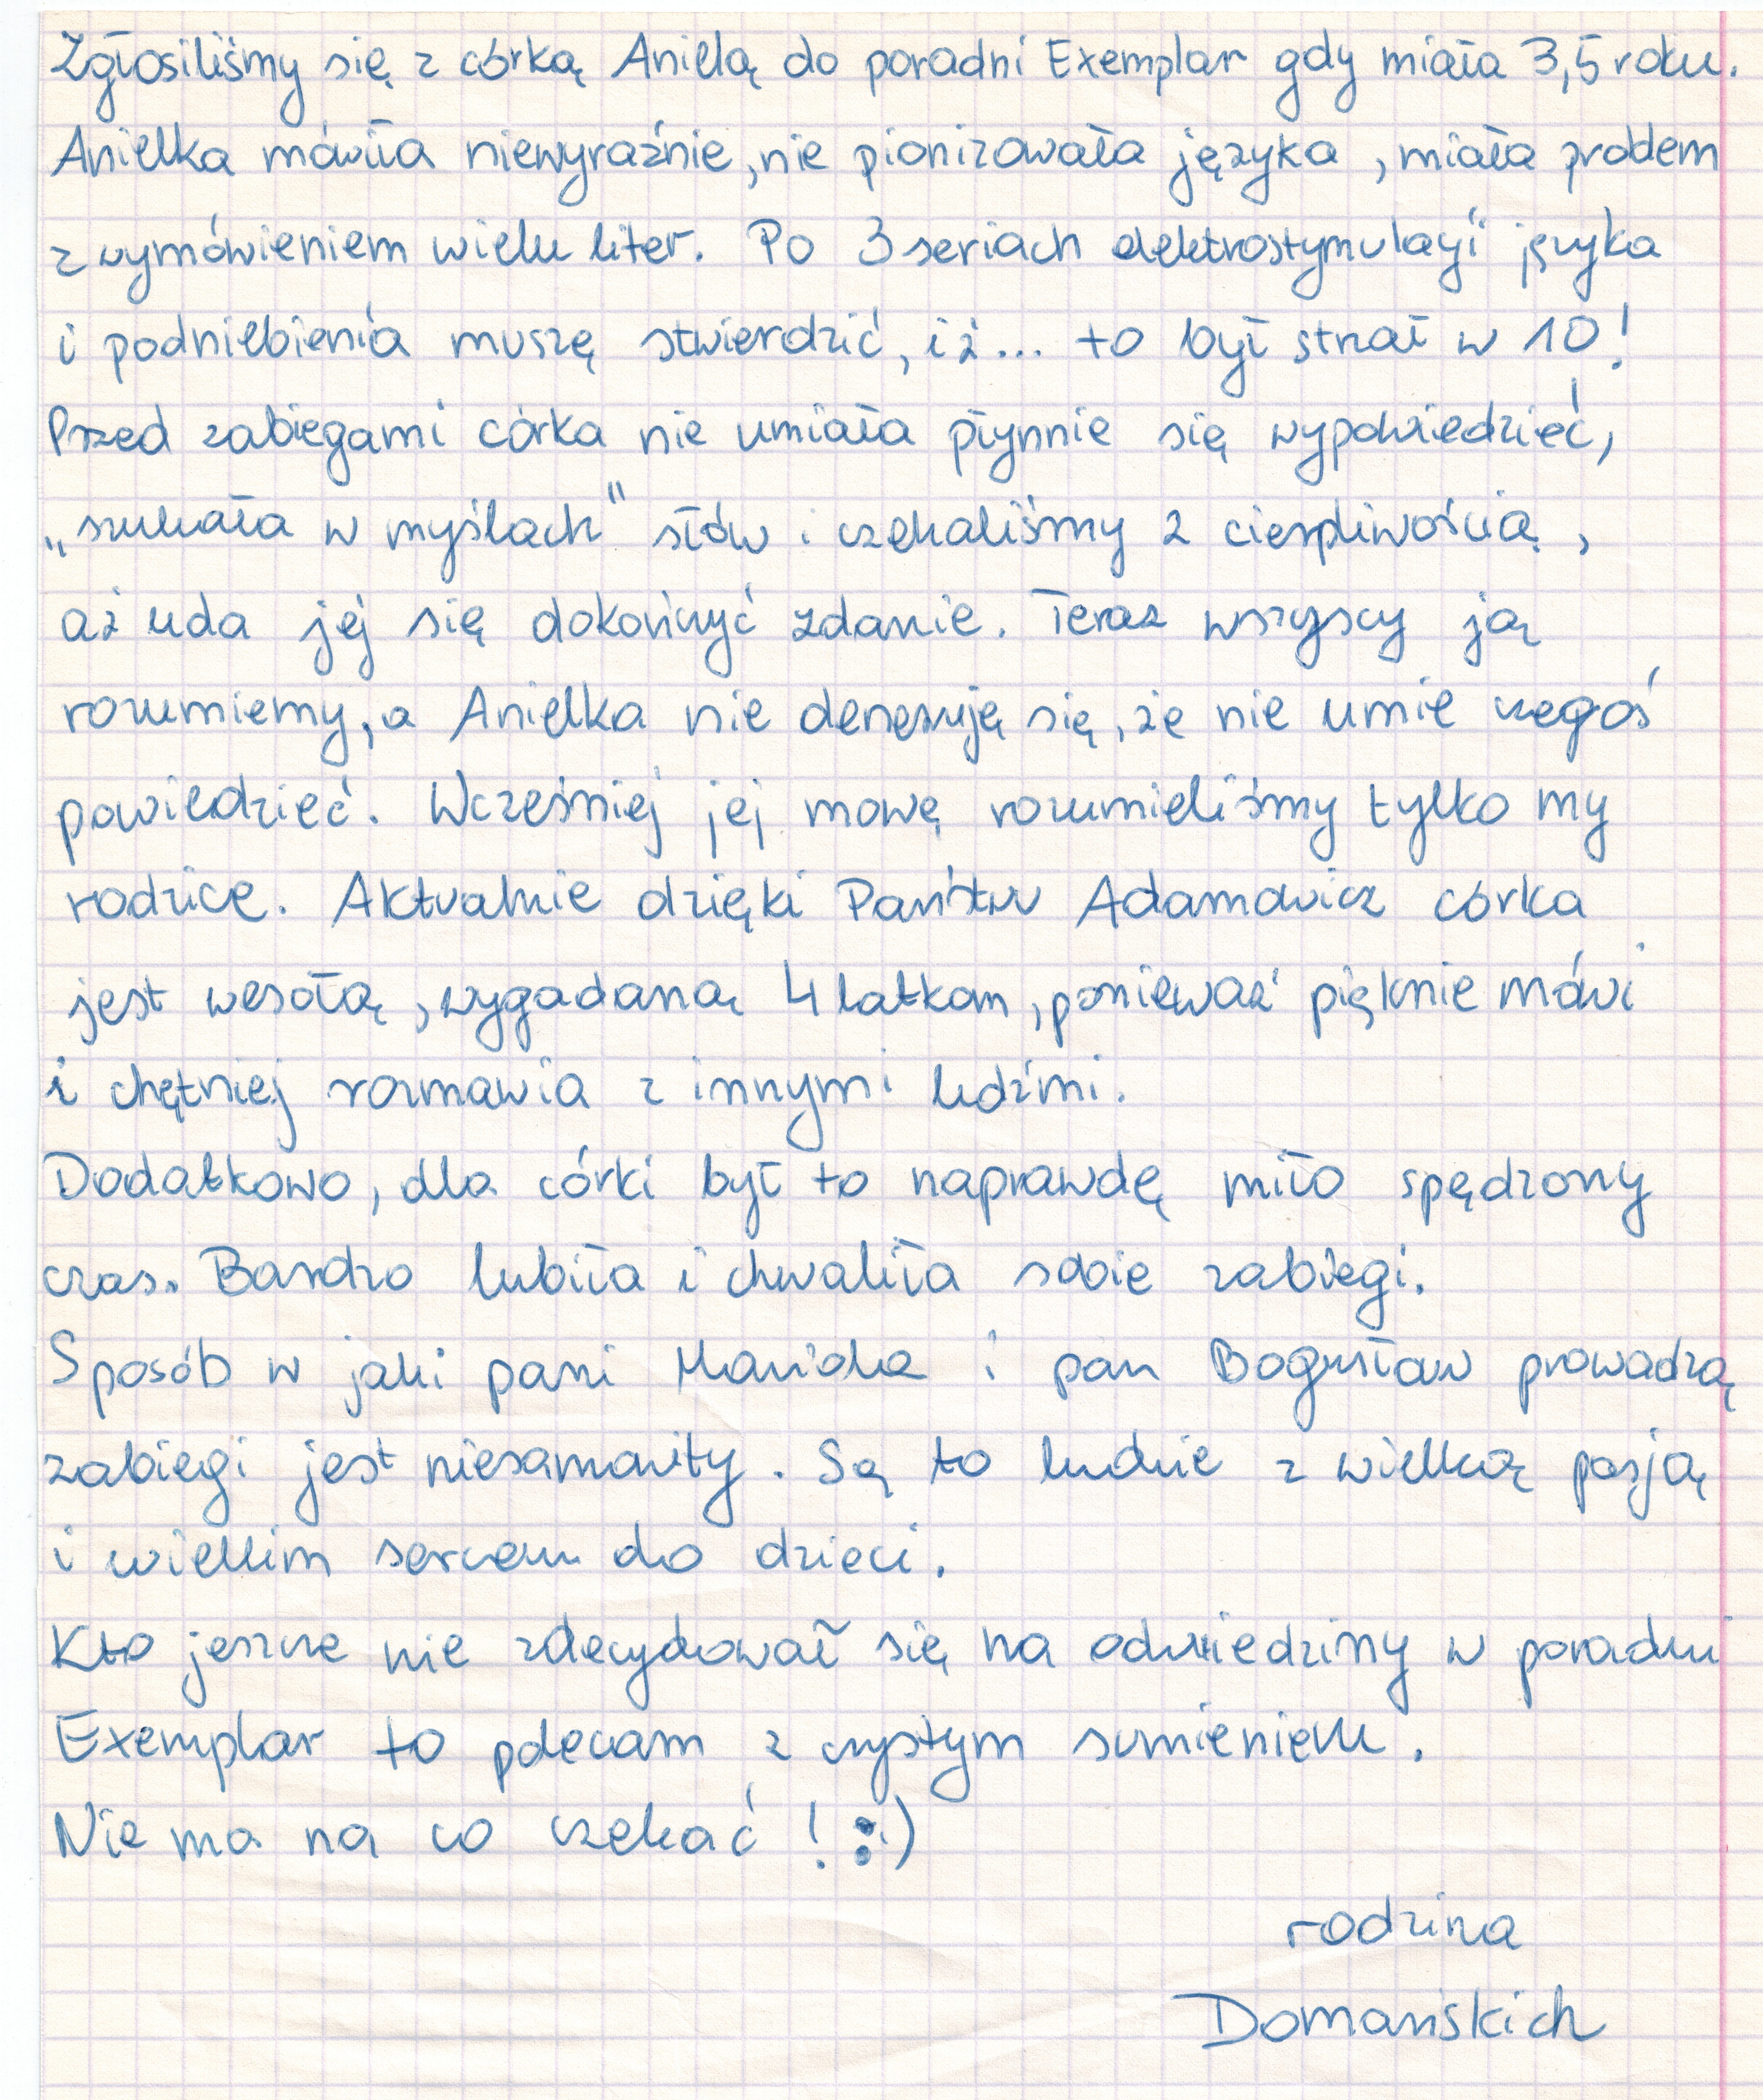 Zgłosiliśmy się z córką Anielą do poradni Exemplar gdy miała 3,5 roku.
Anielka mówiła niewyraźnie, nie pionizowała języka, miała problem
z wymówieniem wielu liter. Po 3 seriach elektrostymulacji języka
i podniebienia muszę stwierdzić, iż... to był strzał w 10!
Przed zabiegami córka nie umiała płynnie się wypowiedzieć,
„szukała w myślach" słów i czekaliśmy z cierpliwością,
aż uda jej się dokończyć zdanie. Teraz wszyscy ją
rozumiemy, a Anielka nie denerwuję się, że nie umie czegoś
powiedzieć. Wcześniej jej mowę rozumieliśmy tylko my
rodzice. Aktualnie dzięki Państwu Adamowicz córka
jest wesołą, wygadaną 4 latkom, ponieważ pięknie mówi
i chętniej rozmawia z innymi ludźmi.
Dodatkowo, dla córki był to naprawdę miło spędzony
czas. Bardzo lubiła i chwaliła sobie zabiegi.
Sposób w jaki pani i pan Bogusław prowadzą
zabiegi jest niesamowity. Są to ludzie z wielką pasją
i wielkim sercem do dzieci.
Kto jeszcze nie zdecydował się na odwiedziny w poradni
Exemplar to polecam z czystym sumieniem.
Nie ma na co czekać! :)
rodzina
Domańskich